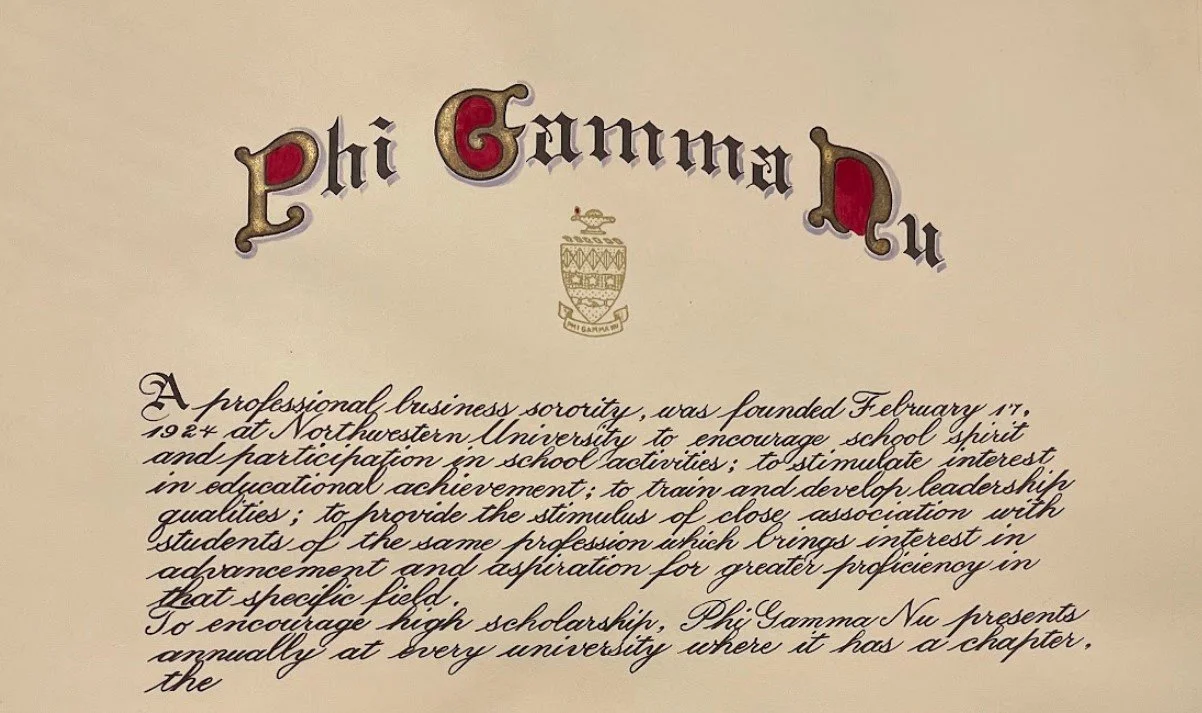 Phi Gamma Nu
PHI GAMMA NU
A professional business sorority, was founded February 17,
1924 at Northwestern University to encourage school spirit
and participation in school activities; to stimulate interest
in educational achievement; to train and develop leadership
qualities; to provide the stimulus of close association with
students of the same profession which brings interest in
advancement and aspiration for greater proficiency in
that specific field.
To encourage high scholarship, Phi Gamma Nu presents
annually at every university where it has a chapter,
the